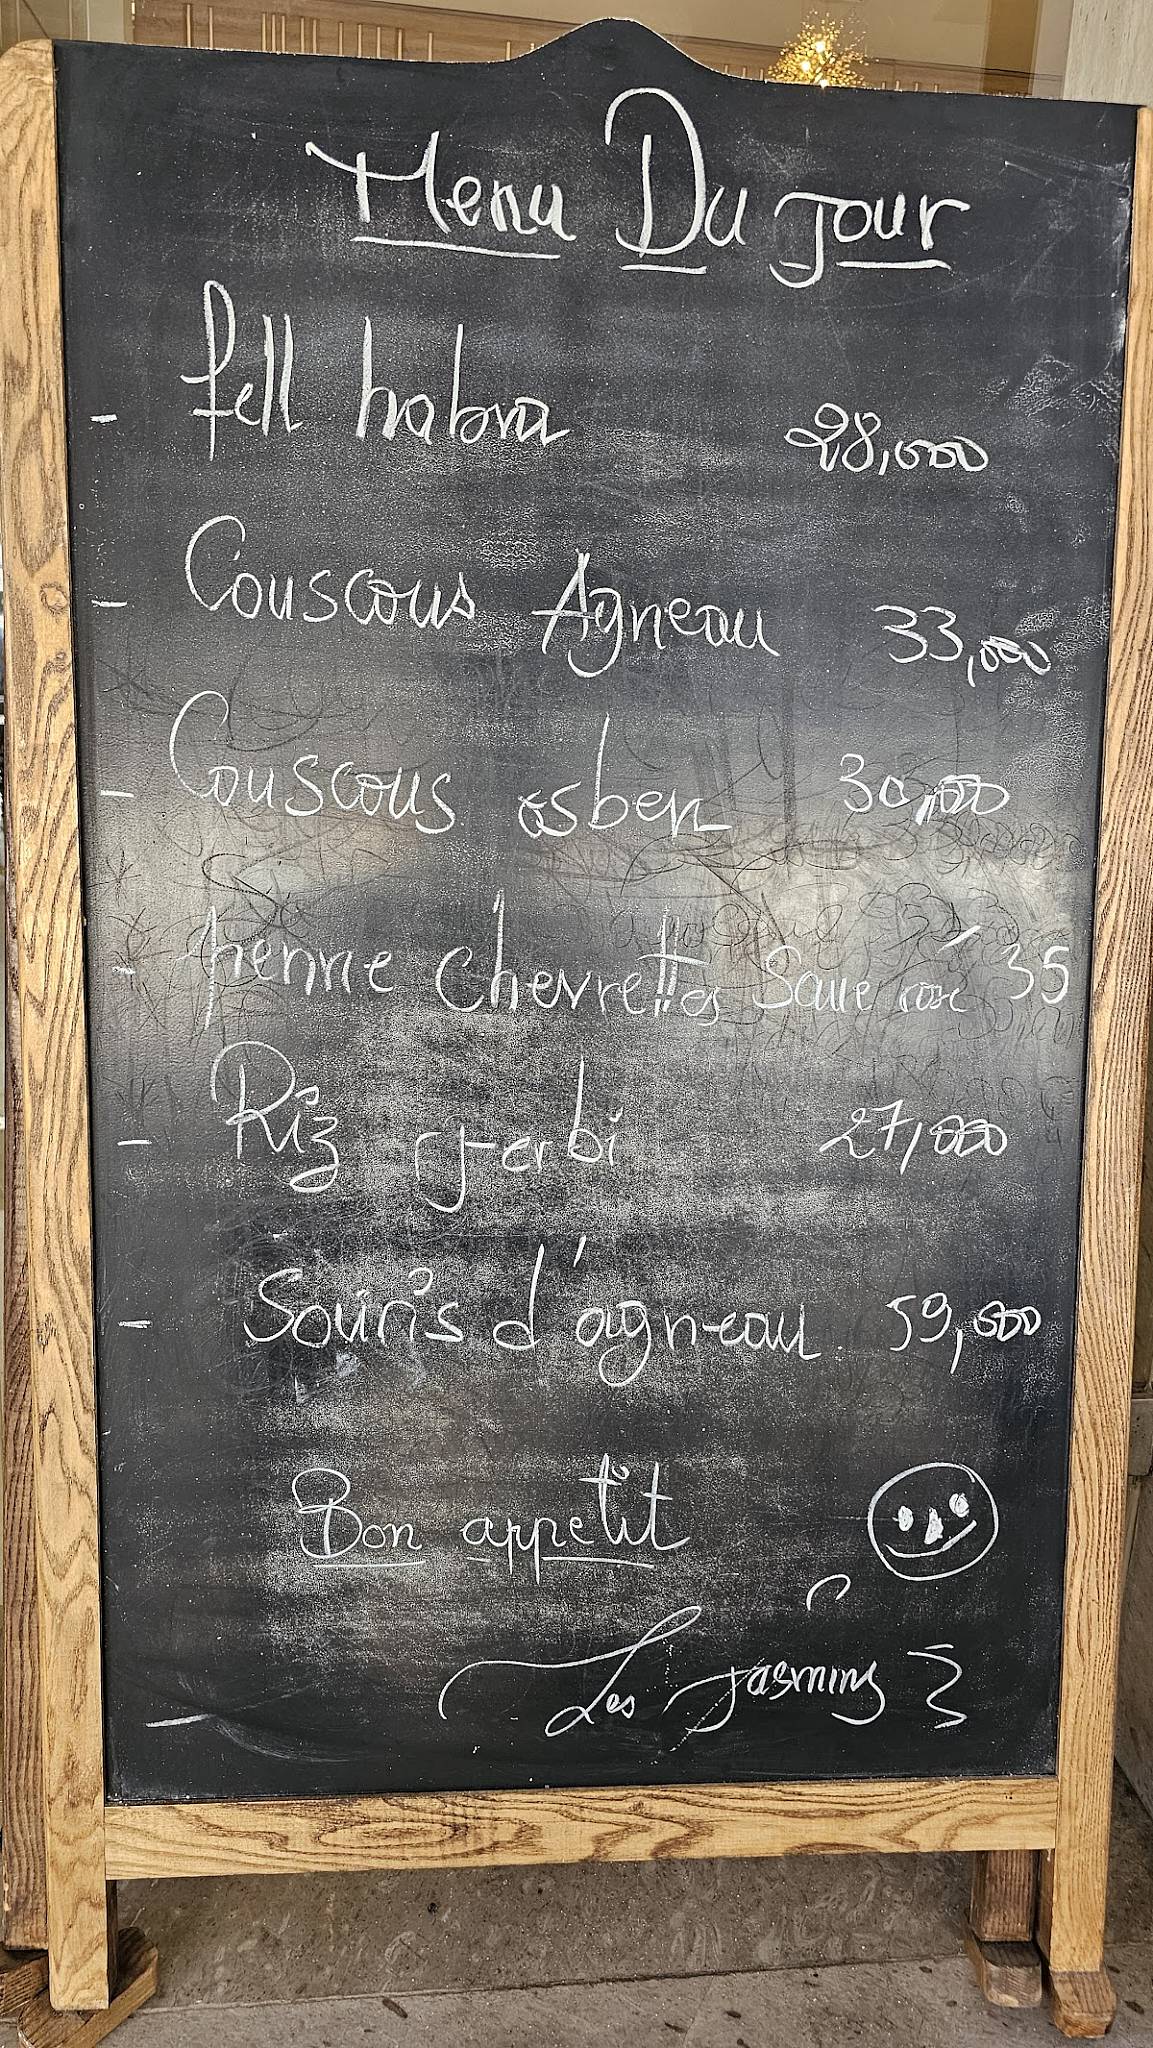 Menu Du jour
- fell habra 28,000
- Couscous Agneau 33,000
- Couscous osben 30,000
- penne chevrettes Sauce rosé 35
- Riz jerbi 27,000
- Souris d'agneau 59,000
Bon appetit
Les Jasmins